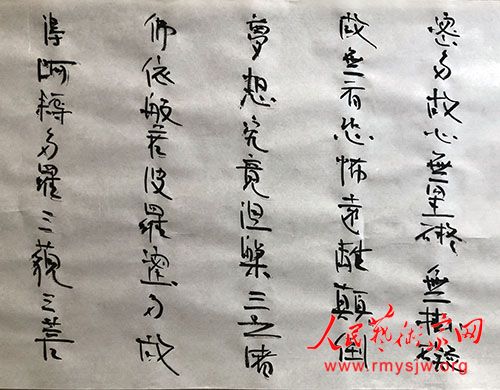 蜜多故心無罣礙無挂礙
故無有恐怖遠離顛倒
夢想究竟涅槃三世諸
佛依般若波羅蜜多故
得阿耨多羅三藐三菩
人民藝術家网
www.rmysjw.org